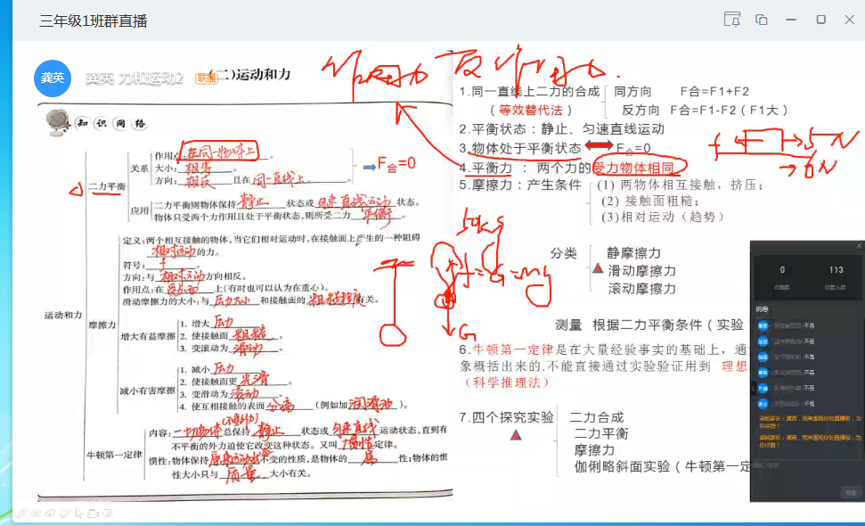 三年级1班群直播
龚英
龚英 力和运动2
联播
(二)运动和力
作用力 反作用力
知识网络
作用点:在同一物体上。
关系 大小:相等。
方向:相反 且在同一直线上。
F合=0
二力平衡
应用 二力平衡则物体保持静止状态或匀速直线运动状态。
物体只受两个力作用且处于平衡状态,则所受二力平衡。
定义:两个相互接触的物体,当它们相对运动时,在接触面上产生的一种阻碍
相对运动的力。
符号:f
方向:与相对运动方向相反。
作用点:在 上(有时也可以认为在重心)。
滑动摩擦力的大小:与压力大小和接触面的粗糙程度有关。
运动和力
摩擦力
增大有益摩擦
1. 增大压力。
2. 使接触面粗糙。
3. 变滚动为滑动。
减小有害摩擦
1. 减小压力。
2. 使接触面更光滑。
3. 变滑动为滚动。
4. 使互相接触的表面分离(例如加润滑油)。
牛顿第一定律
内容:一切物体总保持静止状态或匀速直线运动状态,直到有
不平衡的外力迫使它改变这种状态。又叫惯性定律。
惯性:物体保持原来运动状态不变的性质,是物体的属性;物体的惯
性大小只与质量大小有关。
1.同一直线上二力的合成 同方向 F合=F1+F2
(等效替代法) 反方向 F合=F1-F2(F1大)
2.平衡状态:静止、匀速直线运动
3.物体处于平衡状态 F合=0
4.平衡力: 两个力的受力物体相同
f 5N
5.摩擦力:产生条件 (1) 两物体相互接触,挤压;
(2) 接触面粗糙;
(3) 相对运动(趋势)
10kg
f=G=mg
G
分类 静摩擦力
滑动摩擦力
滚动摩擦力
测量 根据二力平衡条件(实验
6.牛顿第一定律是在大量经验事实的基础上,通
象概括出来的.不能直接通过实验验证用到 理想
(科学推理法)
7.四个探究实验 二力合成
二力平衡
摩擦力
伽俐略斜面实验(牛顿第一定
0 113
消息
不是
不是
不是
不是
不是
不是